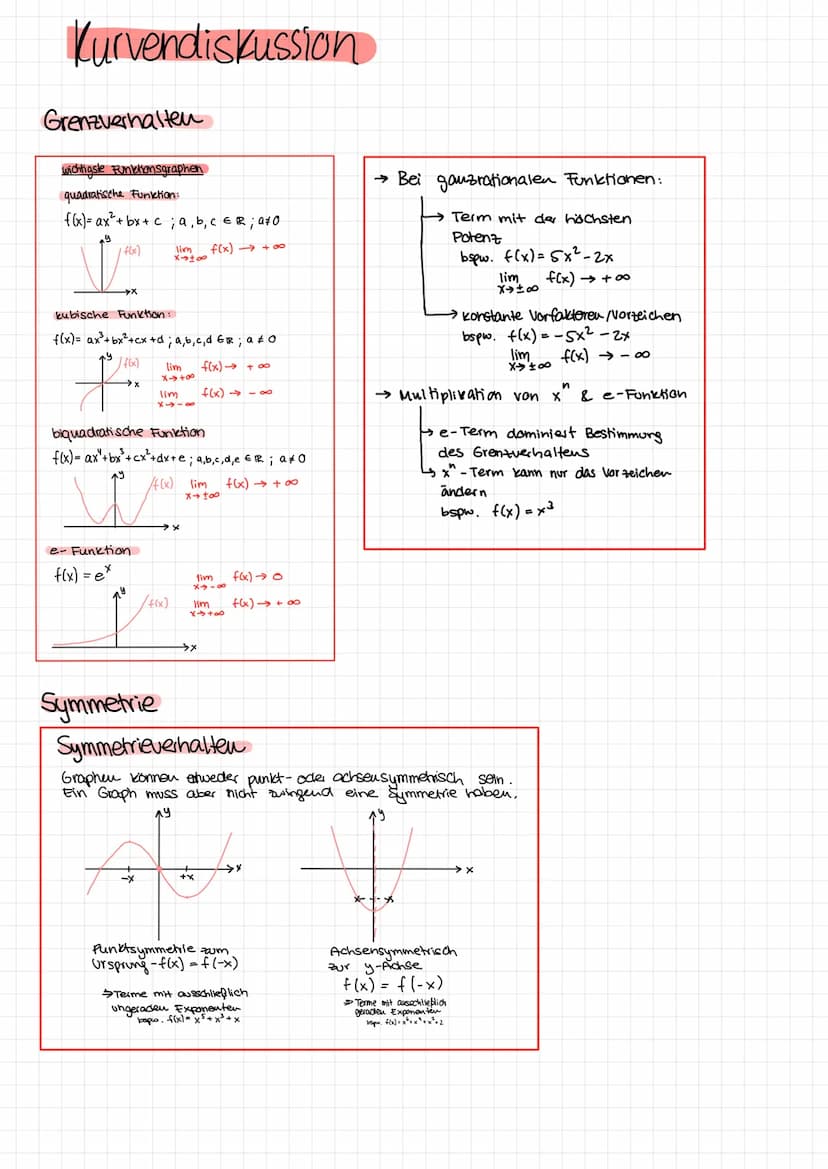 Kurvendiskussion
Grenzverhalten
wichtigste Funktionsgraphen
quadratische Funktion:
f(x)= ax²+bx+c ; a,b,c ∈ ℝ ; a≠0
y
f(x)
lim f(x) → +∞
x→±∞
x
kubische Funktion:
f(x)= ax³+bx²+cx+d ; a,b,c,d ∈ ℝ ; a ≠ 0
y
f(x)
lim f(x) → +∞
x→+∞
x
lim f(x) → -∞
x→-∞
biquadratische Funktion
f(x)= ax⁴+bx³+cx²+dx+e ; a,b,c,d,e ∈ ℝ ; a≠0
y
f(x)
lim f(x) → +∞
x→±∞
x
e-Funktion
f(x) = eˣ
lim f(x) → 0
x→-∞
y
f(x)
lim f(x) → +∞
x→+∞
x
→ Bei ganzrationalen Funktionen:
→ Term mit der höchsten
Potenz
bspw. f(x) = 5x² - 2x
lim f(x) → +∞
x→±∞
→ konstante Vorfaktoren/Vorzeichen
bspw. f(x) = -5x² - 2x
lim f(x) → -∞
x→±∞
→ Multiplikation von xⁿ & e-Funktion
→ e-Term dominiert Bestimmung
des Grenzverhaltens
→ xⁿ-Term kann nur das Vorzeichen
ändern
bspw. f(x) = x³
Symmetrie
Symmetrieverhalten
Graphen können etweder punkt- oder achsensymmetrisch sein.
Ein Graph muss aber nicht zwingend eine Symmetrie haben.
y
x
-x
+x
y
x
Punktsymmetrie zum
Ursprung -f(x) = f(-x)
⇒ Terme mit ausschließlich
ungeraden Exponenten
bspw. f(x) = x⁵+x³+x
Achsensymmetrisch
zur y-Achse
f(x) = f(-x)
⇒ Terme mit ausschließlich
geraden Exponenten